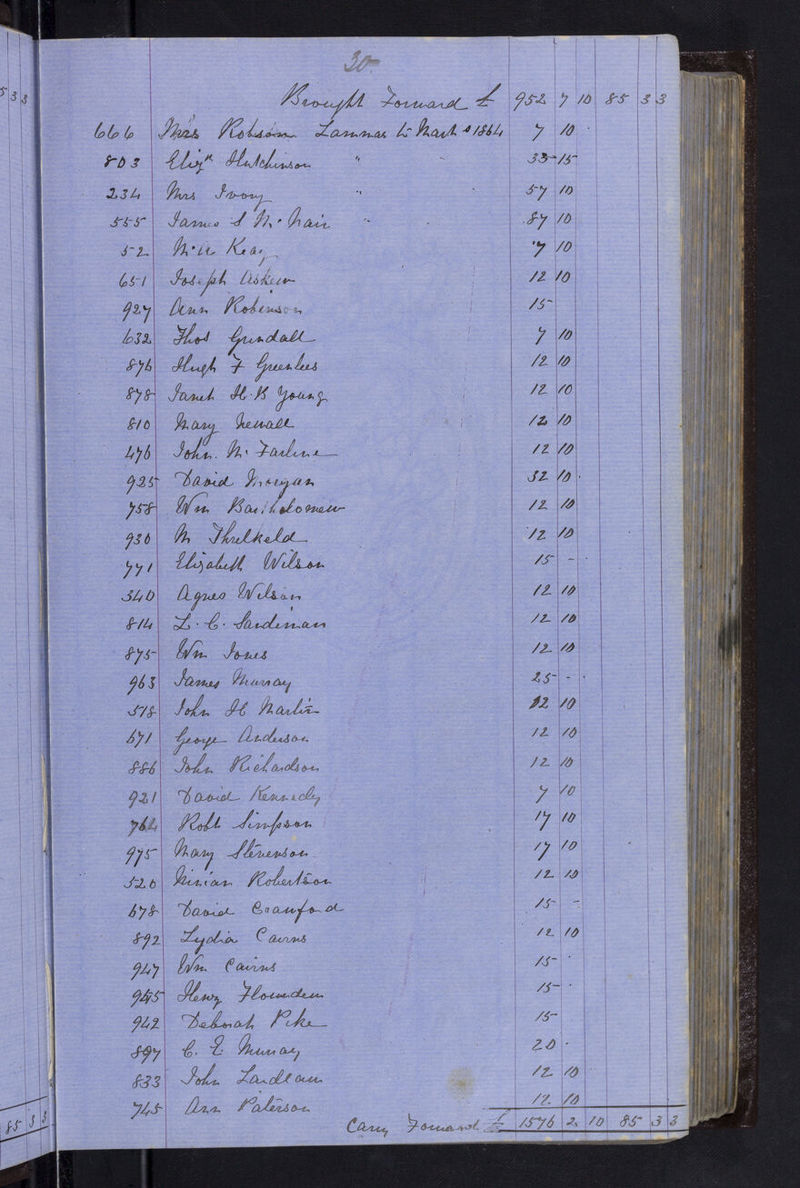 30
Brought Forward £ 952 7 10 85 3 3
666 Mrs Robson Lammas to Mart. 1864 7 10
803 Eliz. Hutchinson " 33 15
234 Mrs Ivory " 57 10
555 James S Mc Nair " 87 10
52 Keay 7 10
651 Joseph Askew 12 10
927 Ann Robinson 15
632 Thos Grindall 7 10
876 Hugh F Greenlees 12 10
878 Janet H. B Young 12 10
810 Mary Newall 12 10
476 John Mc Farline 12 10
925 David Morgan 32 10
758 Wm Bartholomew 12 10
930 M Threlkeld 12 10
771 Elizabeth Wilson 15 -
340 Agnes Wilson 12 10
814 L. C. Sandeman 12 10
875 Wm Jones 12 10
963 James Murray 25 -
518 John H Martin 12 10
671 George Anderson 12 10
886 John Richardson 12 10
921 David Kennedy 7 10
764 Robt Simpson 17 10
975 Mary Stevenson 17 10
520 Ninian Robertson 12 10
678 David Crawford 15 -
892 Lydia Cairns 12 10
947 Wm Cairns 15
945 Henry 15
942 Deborah Pike 15
897 C. E Murray 20
833 John Laidlaw 12 10
745 Ann Paterson 12 10
Carry Forward £ 1576 2 10 85 3 3
533
85 3 3